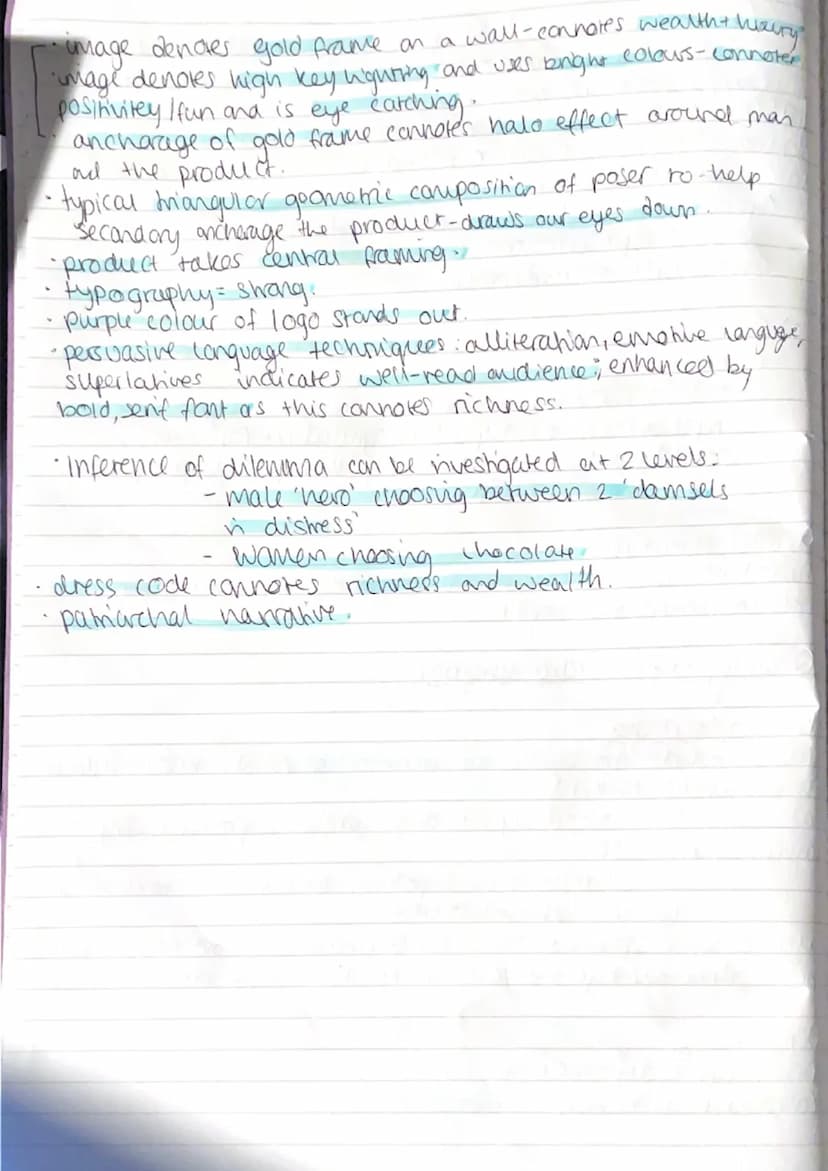 · image denotes gold frame on a wall - connotes wealth + luxury
· image denotes high key lighting and uses bright colours - connotes
positivitey / fun and is eye catching.
· anchorage of gold frame connotes halo effect around man
and the product.
· typical triangular geometric composition of poser to help
secondary anchorage the product - draws our eyes down.
· product takes central framing.
· typography = strong.
· purple colour of logo stands out.
· persuasive language techniques: alliteration, emotive languge,
superlatives indicates well-read audience; enhanced by
bold, serif font as this connotes richness.
· Inference of dilemma can be investigated at 2 levels:
- male 'hero' choosing between 2 'damsels
in distress'
- women choosing chocolate
· dress code connotes richness and wealth.
· patriarchal narrative.